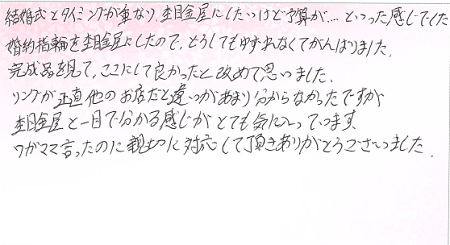 結婚式とタイミングが重なり、杢目金屋にしたいけど予算が…といった感じでした
婚約指輪を杢目金屋にしたので、どうしてもゆずれなくてがんばりました。
完成品を見て、ここにして良かったと改めて思いました。
リングが正直他のお店だと違いがあまり分からなかったですが
杢目金屋と一目で分かる感じがとても気に入ってます
ワガママ言ったのに親切に対応して頂きありがとうございました。